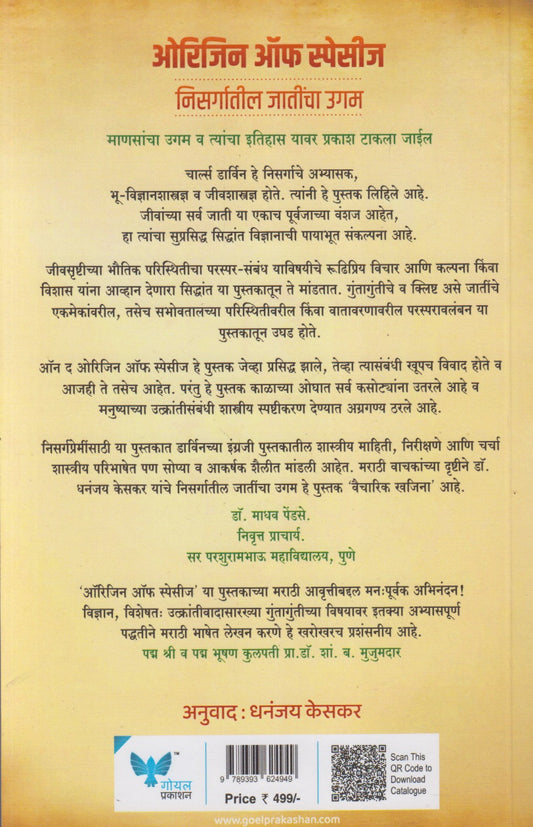 ओरिजिन ऑफ स्पेसीज
निसर्गातील जातींचा उगम
माणसांचा उगम व त्यांचा इतिहास यावर प्रकाश टाकला जाईल
चार्ल्स डार्विन हे निसर्गाचे अभ्यासक,
भू-विज्ञानशास्त्रज्ञ व जीवशास्त्रज्ञ होते. त्यांनी हे पुस्तक लिहिले आहे.
जीवांच्या सर्व जाती या एकाच पूर्वजाच्या वंशज आहेत,
हा त्यांचा सुप्रसिद्ध सिद्धांत विज्ञानाची पायाभूत संकल्पना आहे.
जीवसृष्टीच्या भौतिक परिस्थितीचा परस्पर-संबंध याविषयीचे रूढिप्रिय विचार आणि कल्पना किंवा
विश्वास यांना आव्हान देणारा सिद्धांत या पुस्तकातून ते मांडतात. गुंतागुंतीचे व क्लिष्ट असे जातींचे
एकमेकांवरील, तसेच सभोवतालच्या परिस्थितीवरील किंवा वातावरणावरील परस्परावलंबन या
पुस्तकातून उघड होते.
ऑन द ओरिजिन ऑफ स्पेसीज हे पुस्तक जेव्हा प्रसिद्ध झाले, तेव्हा त्यासंबंधी खूपच विवाद होते व
आजही ते तसेच आहेत. परंतु हे पुस्तक काळाच्या ओघात सर्व कसोट्यांना उतरले आहे व
मनुष्याच्या उत्क्रांतीसंबंधी शास्त्रीय स्पष्टीकरण देण्यात अग्रगण्य ठरले आहे.
निसर्गप्रेमींसाठी या पुस्तकात डार्विनच्या इंग्रजी पुस्तकातील शास्त्रीय माहिती, निरीक्षणे आणि चर्चा
शास्त्रीय परिभाषेत पण सोप्या व आकर्षक शैलीत मांडली आहेत. मराठी वाचकांच्या दृष्टीने डॉ.
धनंजय केसकर यांचे निसर्गातील जातींचा उगम हे पुस्तक 'वैचारिक खजिना' आहे.
डॉ. माधव पेंडसे.
निवृत्त प्राचार्य.
सर परशुरामभाऊ महाविद्यालय, पुणे
'ऑरिजिन ऑफ स्पेसीज' या पुस्तकाच्या मराठी आवृत्तीबद्दल मनःपूर्वक अभिनंदन!
विज्ञान, विशेषतः उत्क्रांतीवादासारख्या गुंतागुंतीच्या विषयावर इतक्या अभ्यासपूर्ण
पद्धतीने मराठी भाषेत लेखन करणे हे खरोखरच प्रशंसनीय आहे.
पद्म श्री व पद्म भूषण कुलपती प्रा.डॉ. शां. ब. मुजुमदार
अनुवाद : धनंजय केसकर
™
गोयल
प्रकाशन
9 789393 624949
Price ₹ 499/-
Scan This
QR Code to
Download
Catalogue
www.goelprakashan.com